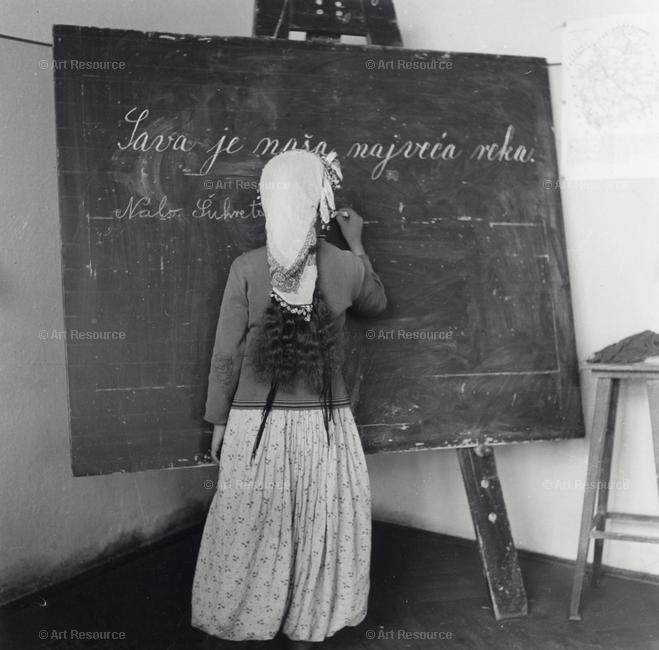 Sava je naša najveća reka.
Nalo Šuhreta
© Art Resource © Art Resource
© Art Resource © Art Resource
© Art Resource © Art Resource
© Art Resource © Art Resource
© Art Resource © Art Resource